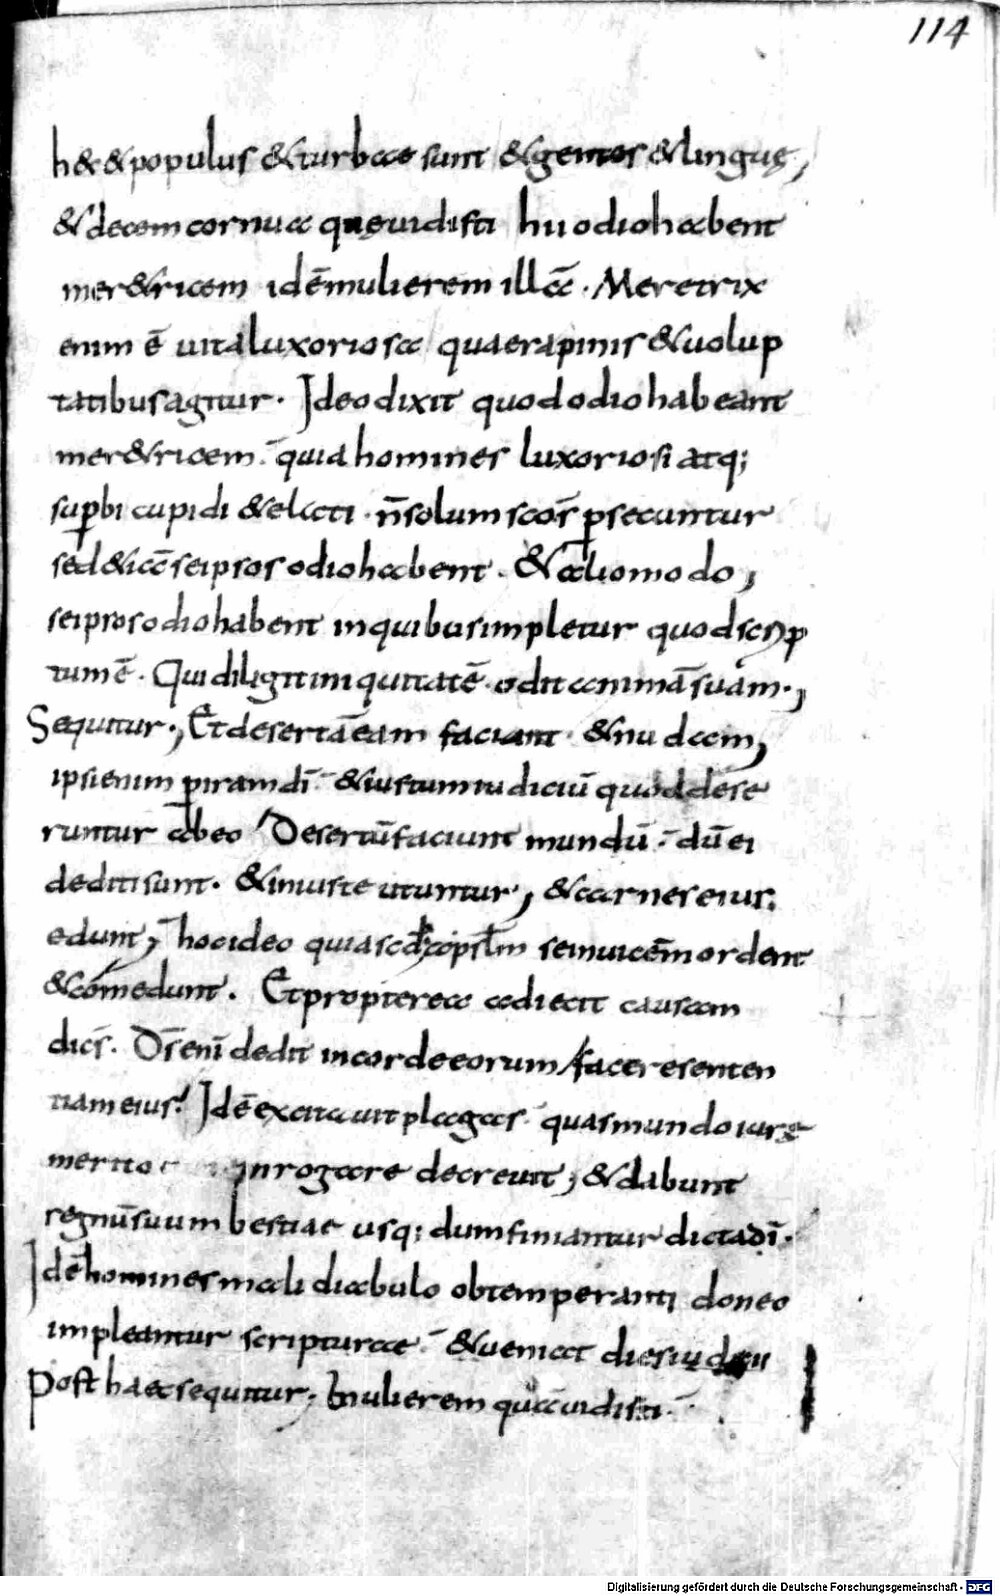 114
h& & populus & turbae sunt & gentes & linguę,
& decem cornua quę uidisti hii odio habent
mer&ricem idē mulierem illā. Meretrix
enim ē uita luxoriosa quae rapinis & uolup
tatibus agitur. Ideo dixit quod odio habeant
mer&ricem. quia homines luxoriosi atq;
suꝑbi cupidi & elati. n̄ solum scōs ꝑsecuntur
sed & iā seipsos odio habent. & alio modo,
seipsos odio habent in quibus impletur quod scrip
tum ē. Qui diligit iniquitatē odit animā suam.,
Sequitur., Et desertā eam faciant & nudam,
ipsi enim ꝑ iram dī & iustum iudiciū quod dese
runtur ab eo Desertū faciunt mundū. dū ei
dediti sunt. & iniuste utuntur, & carnes eius
edunt, hoc ideo quia scdm̄ apstm̄ se inuicē mordent
& cōmedunt. Et propterea adiecit causam
dicēs. Ds̄ enī dedit in corde eorum facere senten
tiam eius. Idē excitauit plagas quas mundo iurę
merito inrogare decreuit, & dabunt
regnū suum bestiae usq; dum finiantur dicta dī.
Idē homines mali diabulo obtemperanti donec
impleantur scripturae. & ueniat dies iudicii
Post haec sequitur, Mulierem quā uidisti.
Digitalisierung gefördert durch die Deutsche Forschungsgemeinschaft - DFG